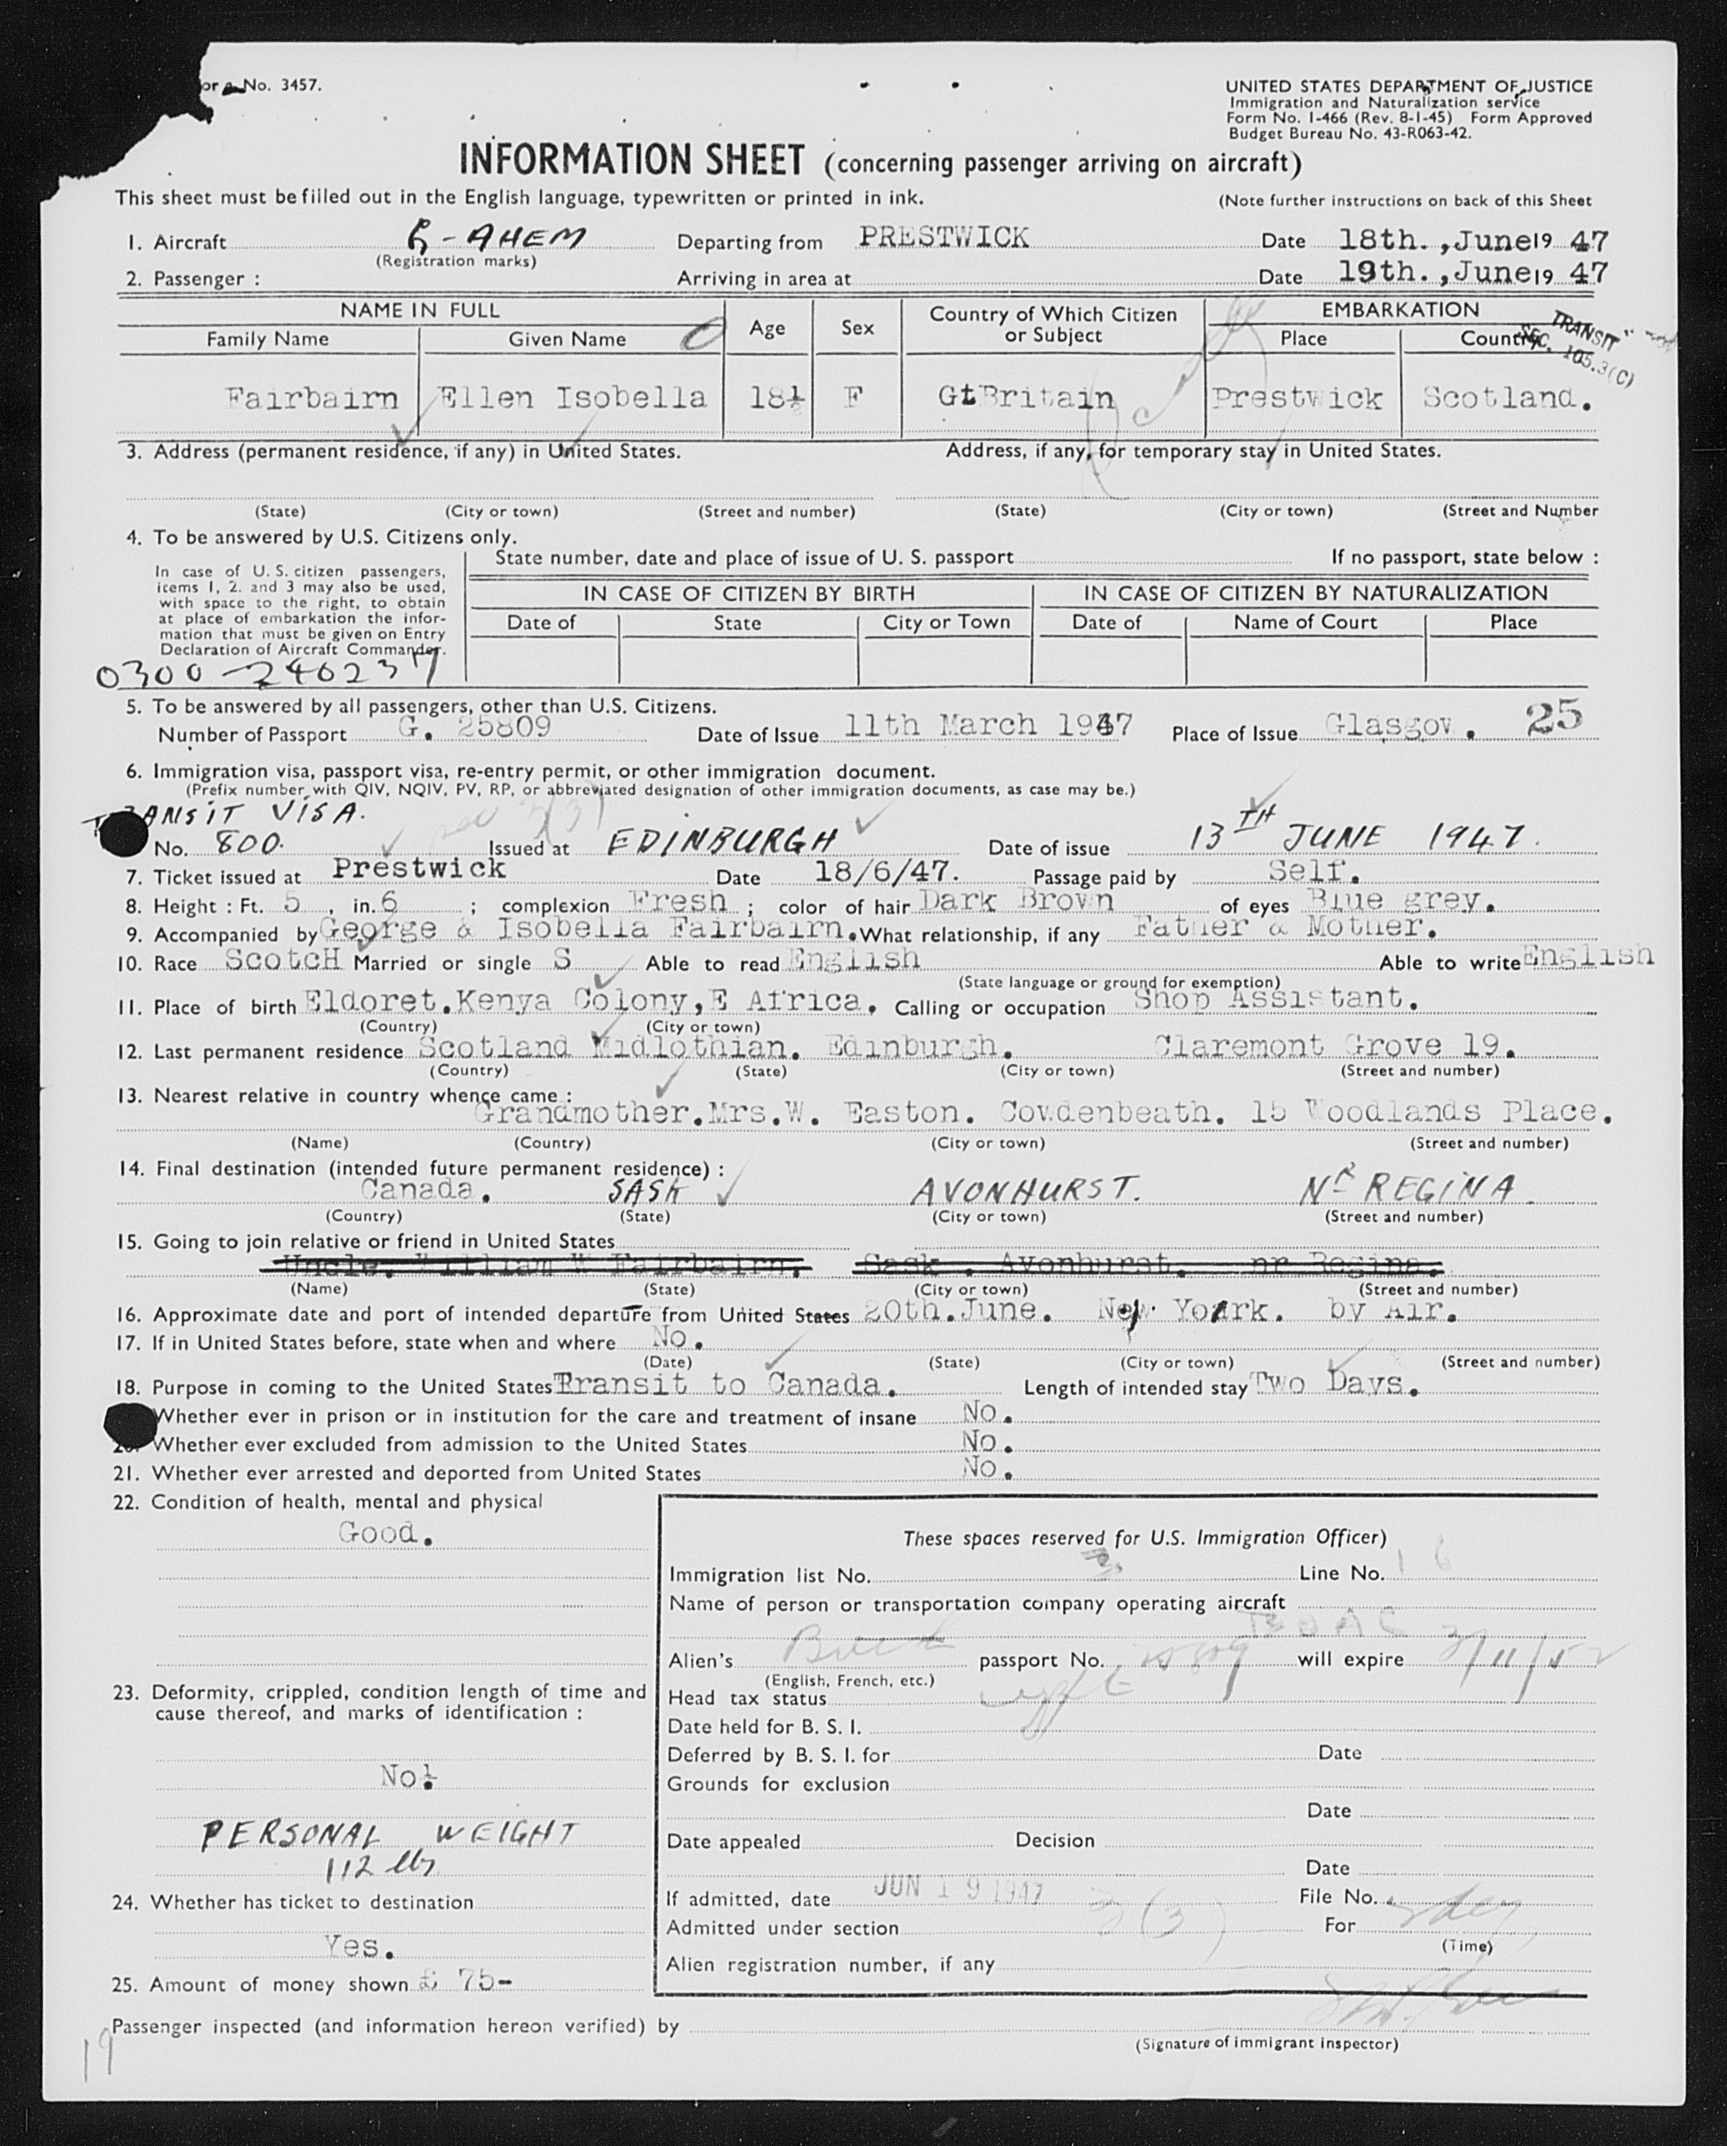 No. 3457.
UNITED STATES DEPARTMENT OF JUSTICE
Immigration and Naturalization service
Form No. I-466 (Rev. 8-1-45) Form Approved
Budget Bureau No. 43-R063-42.
INFORMATION SHEET (concerning passenger arriving on aircraft)
This sheet must be filled out in the English language, typewritten or printed in ink. (Note further instructions on back of this Sheet
1. Aircraft G-AHEM Departing from PRESTWICK Date 18th.,June 19 47
(Registration marks)
2. Passenger : Arriving in area at Date 19th.,June 19 47
NAME IN FULL Age Sex Country of Which Citizen or Subject EMBARKATION
Family Name Given Name Place Country
TRANSIT
SEC. 105.3(C)
Fairbairn Ellen Isobella 18½ F Gt Britain Prestwick Scotland.
3. Address (permanent residence, if any) in United States. Address, if any, for temporary stay in United States.
(State) (City or town) (Street and number) (State) (City or town) (Street and Number
4. To be answered by U.S. Citizens only.
State number, date and place of issue of U. S. passport If no passport, state below :
In case of U. S. citizen passengers,
items 1, 2. and 3 may also be used,
with space to the right, to obtain
at place of embarkation the infor-
mation that must be given on Entry
Declaration of Aircraft Commander.
IN CASE OF CITIZEN BY BIRTH IN CASE OF CITIZEN BY NATURALIZATION
Date of State City or Town Date of Name of Court Place
0300-240237
5. To be answered by all passengers, other than U.S. Citizens.
Number of Passport G. 25809 Date of Issue 11th March 1947 Place of Issue Glasgow. 25
6. Immigration visa, passport visa, re-entry permit, or other immigration document.
(Prefix number with QIV, NQIV, PV, RP, or abbreviated designation of other immigration documents, as case may be.)
TRANSIT VISA.
No. 800. Issued at EDINBURGH Date of issue 13TH JUNE 1947.
7. Ticket issued at Prestwick Date 18/6/47. Passage paid by Self.
8. Height : Ft. 5, in. 6 ; complexion Fresh ; color of hair Dark Brown of eyes Blue grey.
9. Accompanied by George & Isobella Fairbairn. What relationship, if any Father & Mother.
10. Race ScotcH Married or single S Able to read English Able to write English
(State language or ground for exemption)
11. Place of birth Eldoret.Kenya Colony,E Africa. Calling or occupation Shop Assistant.
(Country) (City or town)
12. Last permanent residence Scotland Midlothian. Edinburgh. Claremont Grove 19.
(Country) (State) (City or town) (Street and number)
13. Nearest relative in country whence came :
Grandmother.Mrs.W. Easton. Cowdenbeath. 15 Woodlands Place.
(Name) (Country) (City or town) (Street and number)
14. Final destination (intended future permanent residence) :
Canada. SASK AVONHURST. NR REGINA.
(Country) (State) (City or town) (Street and number)
15. Going to join relative or friend in United States
Uncle. William W Fairbairn. Sask. Avonhurst. nr Regina.
(Name) (State) (City or town) (Street and number)
16. Approximate date and port of intended departure from United States 20th.June. New York. by Air.
17. If in United States before, state when and where No.
(Date) (State) (City or town) (Street and number)
18. Purpose in coming to the United States Transit to Canada. Length of intended stay Two Days.
Whether ever in prison or in institution for the care and treatment of insane No.
20. Whether ever excluded from admission to the United States No.
21. Whether ever arrested and deported from United States No.
22. Condition of health, mental and physical
Good.
These spaces reserved for U.S. Immigration Officer)
Immigration list No. Line No. 16
Name of person or transportation company operating aircraft
BOAC
Alien's passport No. will expire 3/11/52
(English, French, etc.)
23. Deformity, crippled, condition length of time and
cause thereof, and marks of identification :
Head tax status
Date held for B. S. I.
Deferred by B. S. I. for Date
No.
Grounds for exclusion
Date
PERSONAL WEIGHT
112 lbs
Date appealed Decision
Date
24. Whether has ticket to destination
Yes.
If admitted, date JUN 19 1947 File No.
Admitted under section 3(3) For
(Time)
Alien registration number, if any
25. Amount of money shown £ 75-
Passenger inspected (and information hereon verified) by
(Signature of immigrant inspector)
19